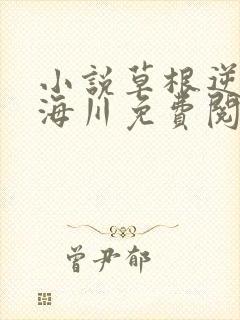 小說草根逆
海川免費閱
曾尹郁